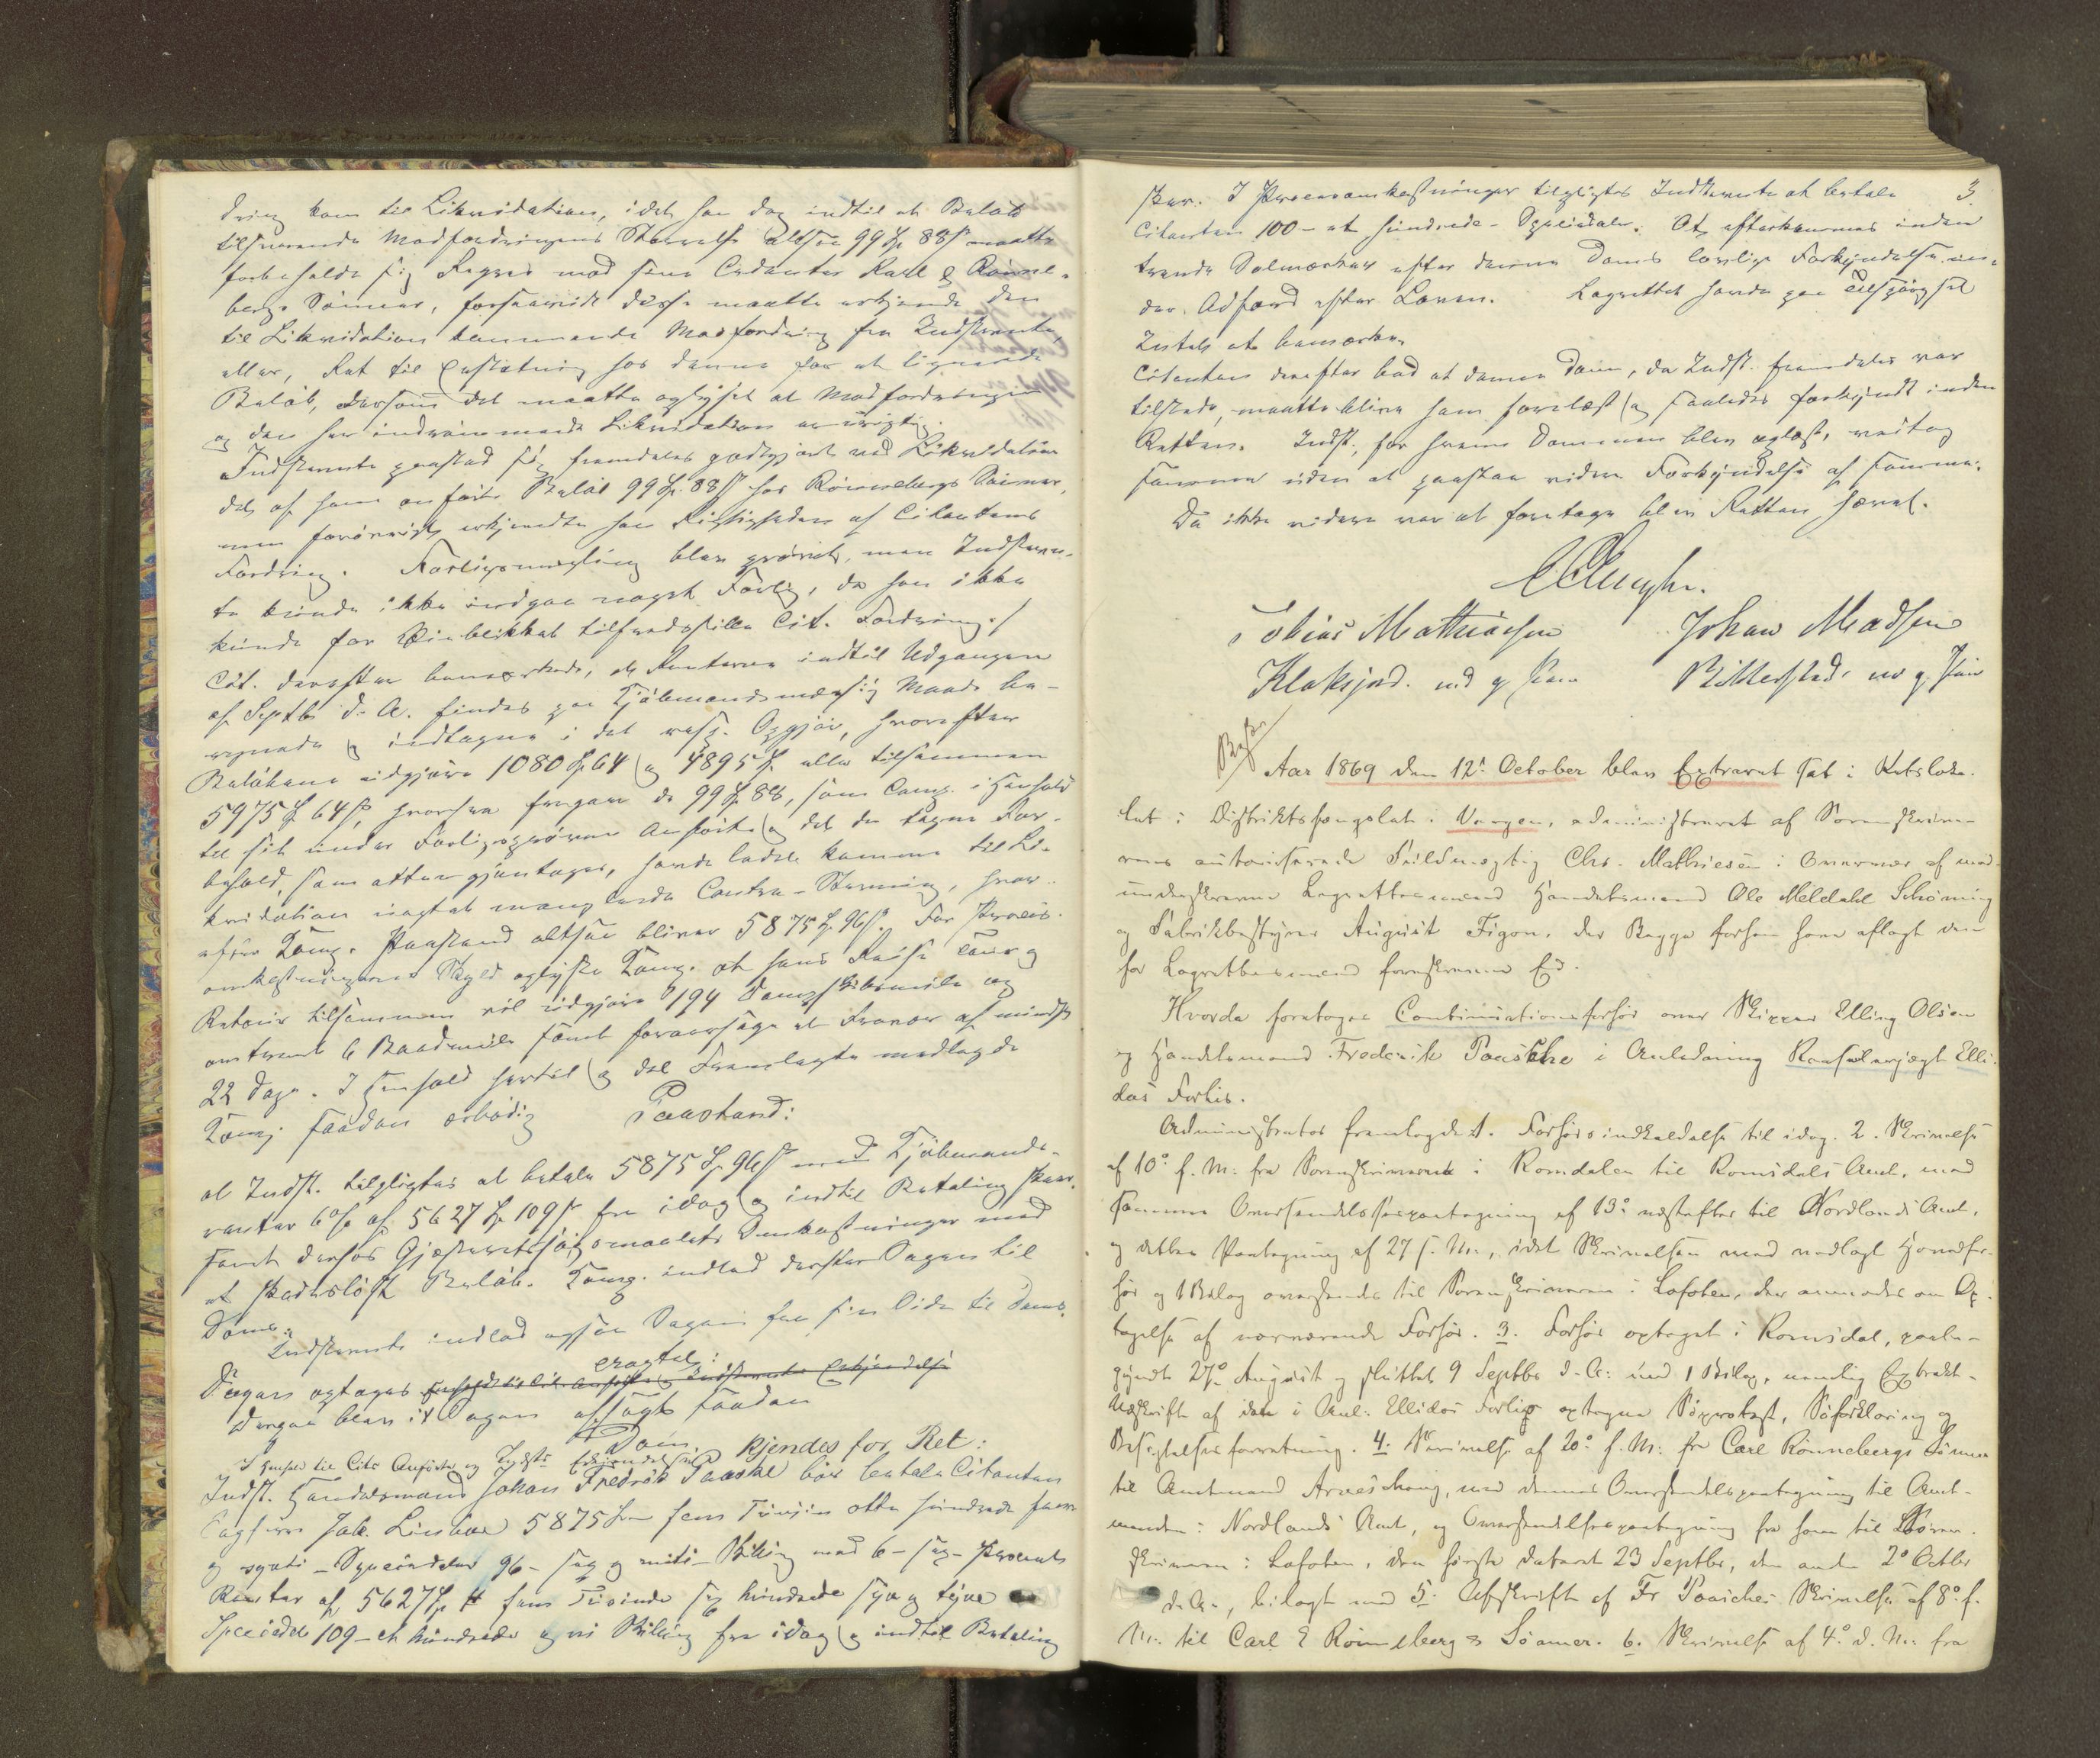 dring kom til Likvidation, idet han dog indtil et Beløb
tilsvarende Modfordringens Størrelse altsaa 99 Spd 88 s maatte
forbeholde sig Regres mod sine Cedenter Karl E Rønne-
bergs Sønner, forsaavidt disse maatte erkjende den
til Likvidation kommende Modfordring fra Indstevnte,
eller, Ret til Erstatning hos denne for et lignende
Beløb, dersom det maatte oplyses at Modfordringen
og den her indrømmede Likvidation er urigtig.
Indstevnte paastod sig fremdeles godtgjort ved Likvidation
det af ham anførte Beløb 99 Spd 88 s hos Rønnebergs Sønner,
men forøvrigt erkjendte han Rigtigheden af Citantens
Fordring. Forligsmægling blev prøvet, men Indstevn-
te kunde ikke indgaa noget Forlig, da han ikke
kunde for Øieblikket tilfredsstille Cit. Fordring./
Cit. derefter bemærkede, at Renterne indtil Udgangen
af Septbr d. A. findes paa Kjøbmandsmæssig Maade be-
regnede og indtagne i det resp. Opgjør, hvorefter
Beløbene udgjøre 1080 Spd 64 og 4895 Spd eller tilsammen
5975 Spd 64 s, hvorfra fragaar de 99 Spd 88, som Comp. i Henhold
til sit under Forligsprøven Anførte og det der tagne For-
behold, som atter gjentages, havde ladet komme til Li-
kvidation uagtet manglende Contra-Stevning, hvor-
efter Komp. Paastand altsaa bliver 5875 Spd 96 s. For Proces-
omkostningernes Skyld oplyste Komp. at hans Reise Tour og
Retour tilsammen vil udgjøre 194 Dampskibsmile og
omtrent 6 Baadmile samt foraarsage et Fravær af mindst
22 Dage. I Henhold hertil og det Fremlagte nedlagde
Komp. saadan ærbødig Paastand:
at Indst. tilpligtes at betale 5875 Spd 96 s med Kjøbmands-
renter 6% af 5627 Spd 109 s fra idag og indtil Betaling skeer,
samt derhos Gjæsteretssøgsmaalets Omkostninger med
et skadesløst Beløb. Komp. indlod derefter Sagen til
Doms.
Indstevnte indlod ogsaa Sagen fra sin Side til Doms.
eragtet:
Sagen optages
Derpaa blev i Sagen afsagt saadan
Dom.
I Henhold til Cits Anførte og Indsts Erkjendelse kjendes for Ret:
Indst. Handelsmand Johan Fredrik Paaske bør betale Citanten
Sagfører Jak. Lindboe 5875 Spd – fem Tusinde otte hundrede fem
og sytti – Speciedaler 96 – sex og nitti – Skilling med 6 – sex – Procents
Renter af 5627 Spd fem Tusinde sex hundrede syv og tyve
Speciedlr 109 – et hundrede og ni Skilling fra idag og indtil Betaling
3.
skeer. I Procesomkostninger tilpligtes Indstevnte at betale
Citanten 100 – et hundrede – Speciedaler. At efterkommes inden
trende Solmærker efter denne Doms lovlige Forkyndelse un-
der Adfærd efter Loven. Lagrettet havde paa Tilspørgsel
Intet at bemærke.
Citanten derefter bad at denne Dom, da Indst. fremdeles var
tilstede, maatte blive ham forelæst og saaledes forkyndt inden
Retten. Indst., for hvem Dommen blev oplæst, vedtog
samme uden at paastaa videre Forkyndelse af samme.
Da ikke videre var at foretage blev Retten hævet.
Tobias Mathiassen Johan Madsen
Klaksjord. md p. Pen Rikterstad. m p. Pen
Aar 1869 den 12te October blev Extraret sat i Retsloka-
let i Distriktsfængslet i Vaagen, administreret af Sorenskrive-
rens autoriserede Fuldmægtig Chr. Mathiesen i Overvær af med-
underskrevne Lagrettesmænd Handelsmand Ole Meldahl Schøning
og Fabrikbestyrer August Figon, der Begge forhen have aflagt den
for Lagrettesmænd foreskrevne Ed.
Hvorda foretoges Continuationsforhør over Skipper Elling Olsen
og Handelsmand Frederik Paaske i Anledning Ranselverjægt Elli-
das Forlis.
Administrator fremlagde 1. Forhørsindkaldelse til idag. 2. Skrivelse
af 10de f. M. fra Sorenskriveren i Romsdalen til Romsdals Amt, med
sammes Oversendelsespaategning af 13de næstefter til Nordlands Amt,
og dettes Paategning af 27 f. M., idet Skrivelsen med vedlagt Hovedfor-
hør og 1 Bilag oversendes til Sorenskriveren i Lofoten, der anmodes om Op-
tagelse af nærværende Forhør. 3. Forhør optaget i Romsdal, paabe-
gyndt 27de August og sluttet 9 Septbr d. A. med 1 Bilag, nemlig Extrakt-
Udskrift af den i Anl. Ellidas Forlis optagne Søprotest, Søforklaring og
Besigtelsesforretning. 4. Skrivelse af 20de f. M. fra Carl Rønnebergs Sønner
til Amtmand Arveschoug, med dennes Oversendelsespaategning til Amt-
manden i Nordlands Amt, og Oversendelsespaategning fra ham til Soren-
skriveren i Lofoten, den første dateret 23 Septbr, den anden 2de Octbr
d. A., bilagt med 5. Afskrift af Fr Paaskes Skrivelse af 8de f.
M. til Carl E Rønneberg & Sønner. 6. Skrivelse af 4de d. M. fra